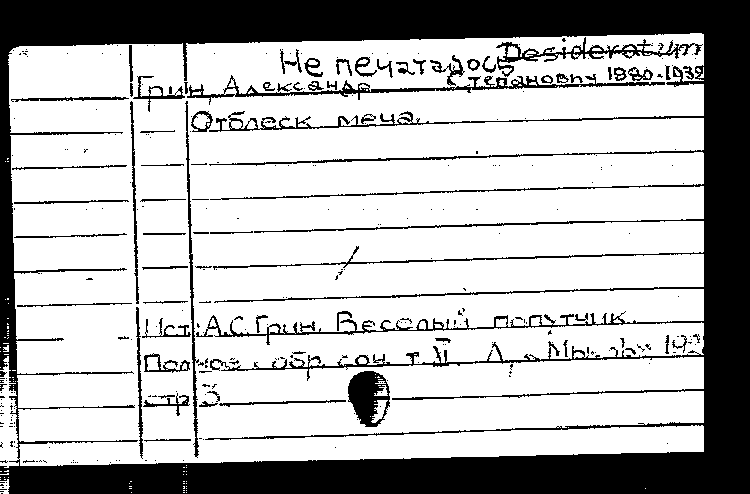 Не печаталось Desideratum
Грин, Александр Степанович 1880-1932
Отблеск меча.
Ист: А.С. Грин. Веселый попутчик.
Полное собр. соч. т. VI Л, "Мысль", 192
стр 3